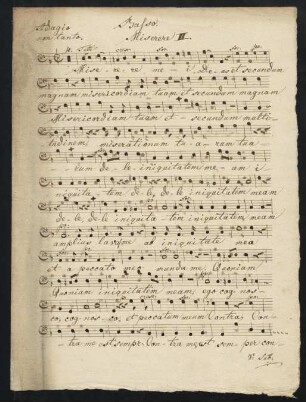 Adagio Basso
non tanto. Miserere II
Mise-re-re me-i Deus et secundum
magnam misericordiam tuam et secundum magnam
Misericordiam tuam et secundum multi
tudinem miserationum tu-a-rum tua-
rum de-le iniquitatem me-am i
niquita tem de-le, de-le iniquitatem meam
de-le, de-le iniquita tem iniquitatem meam
amplius lava me ab iniquitate mea
et a peccato me munda me Quoniam
Quoniam iniquitatem meam, ego cog nos-
co, cog nos-co, et peccatum meum Contra, Con
tra me est semper Con-tra me est sem per con-
V. S.